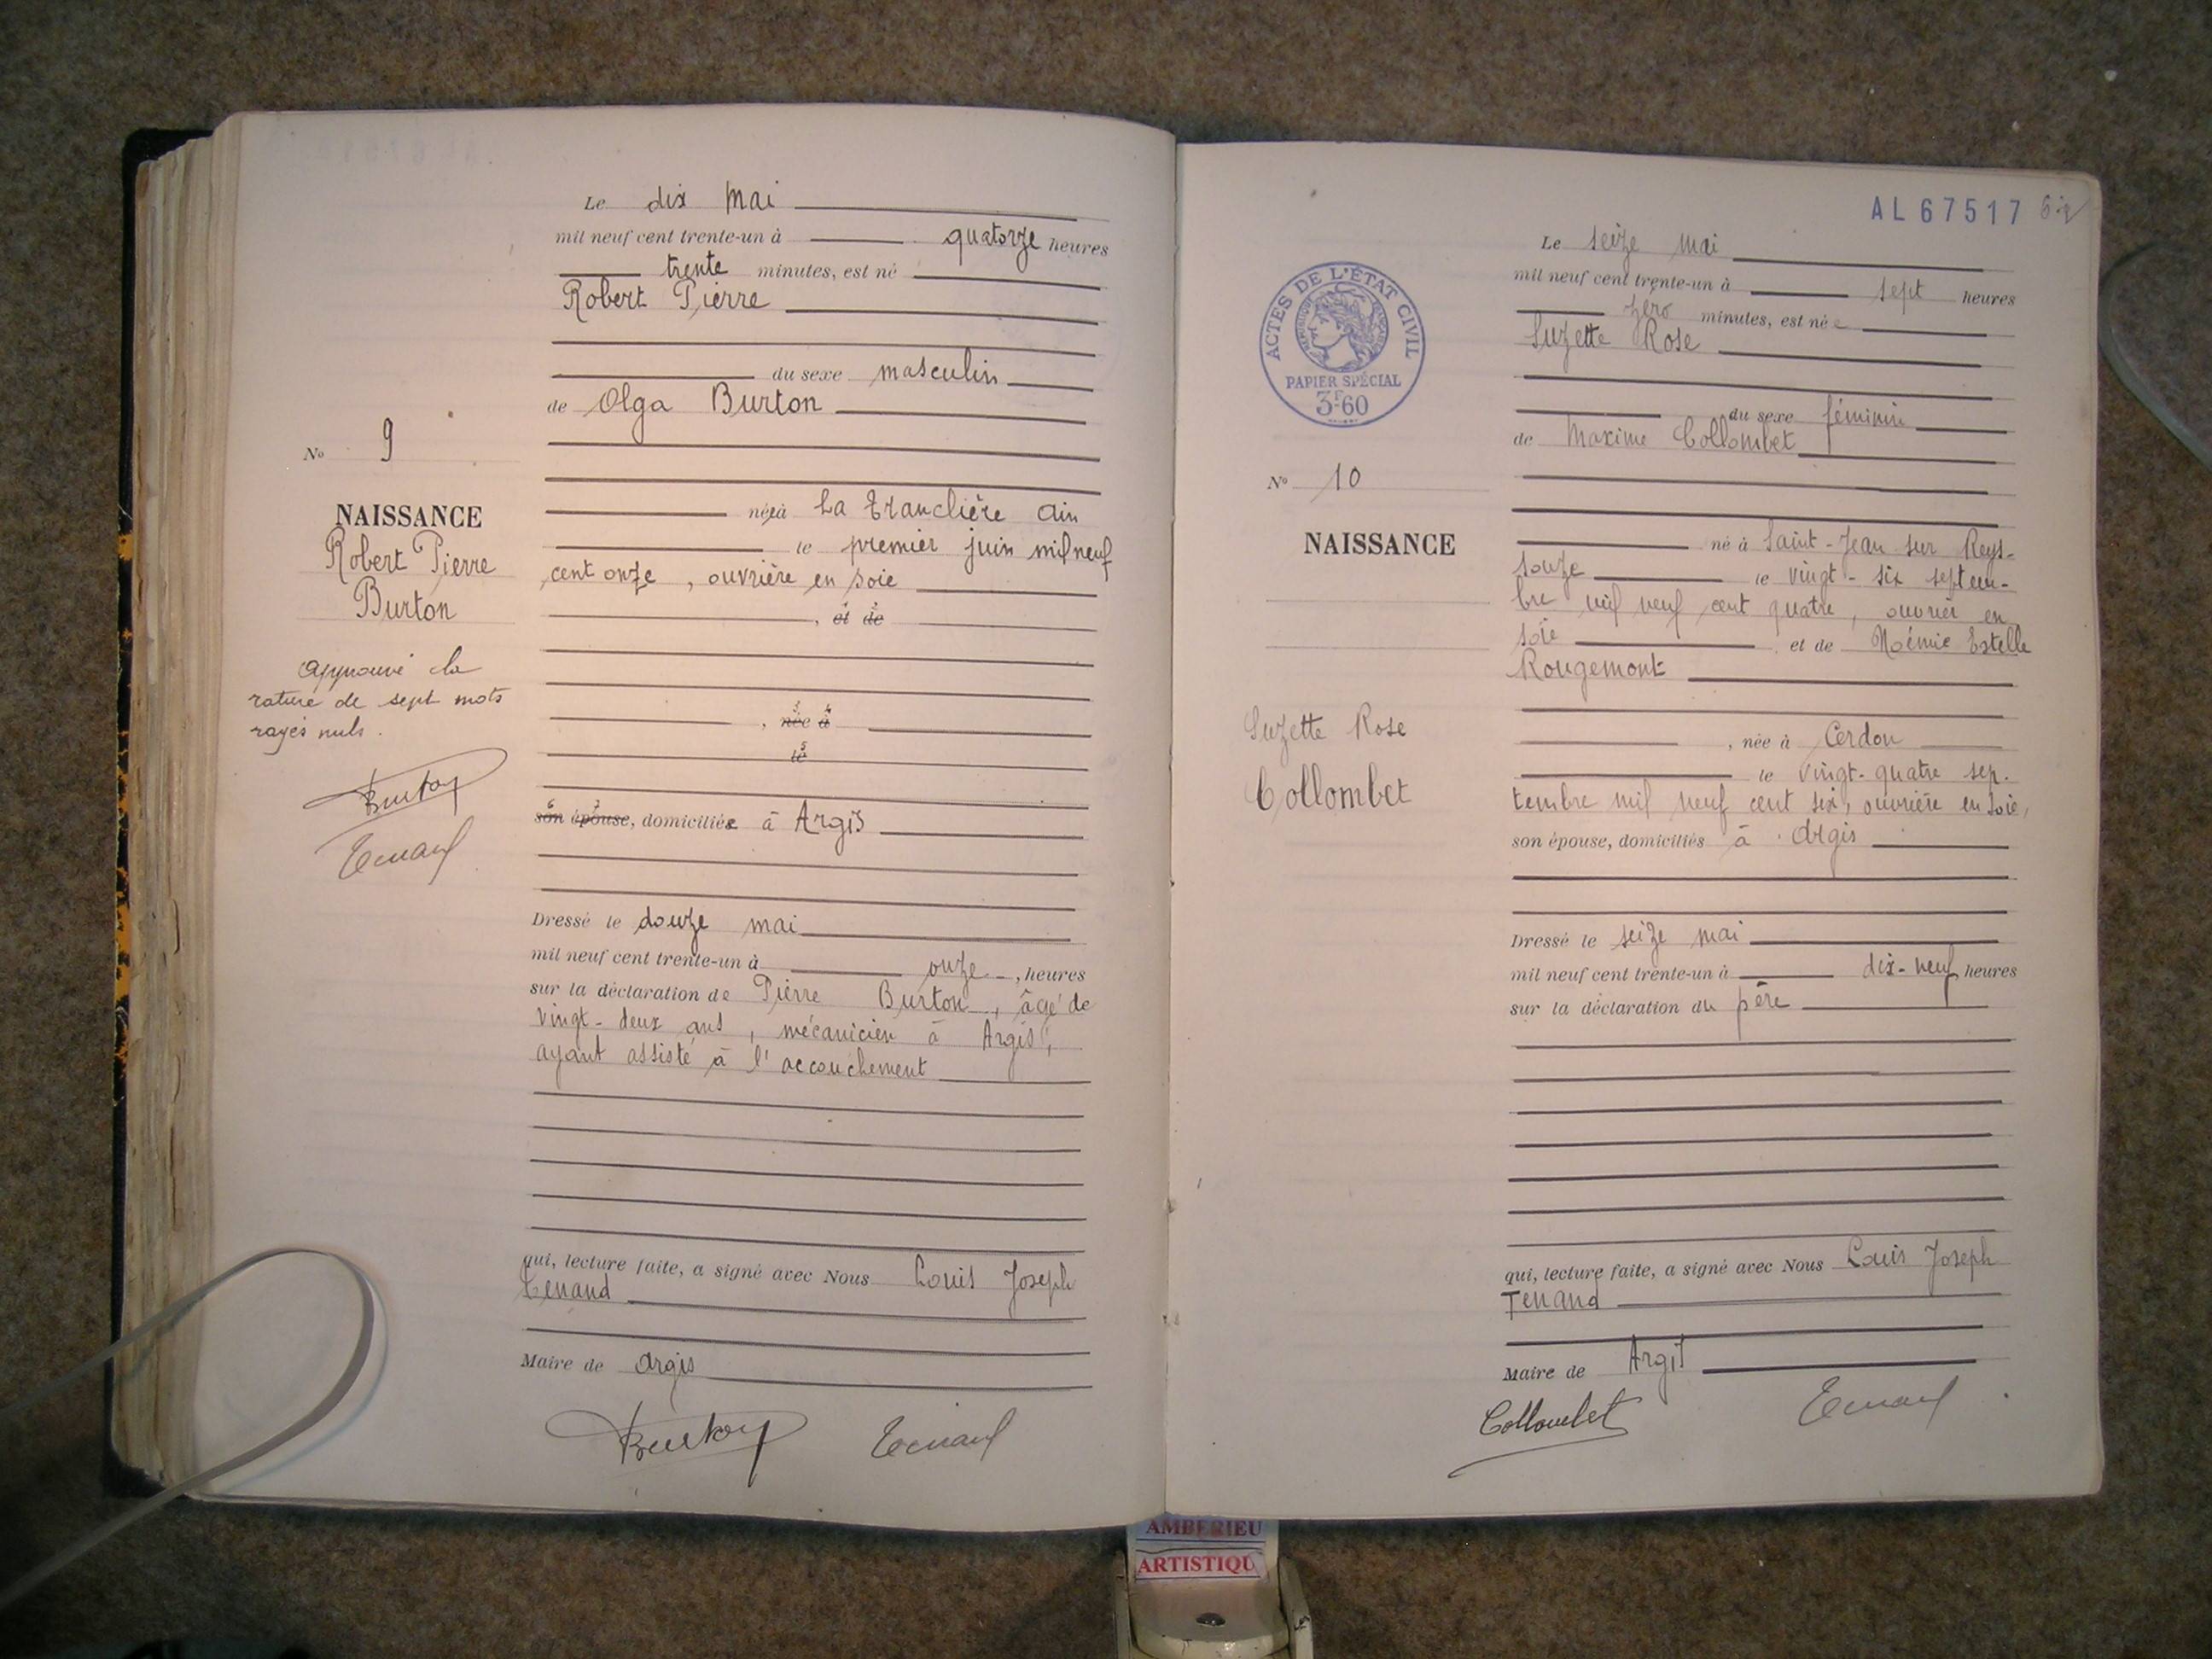 Le dix Mai
mil neuf cent trente-un à quatorze heures
trente minutes, est né
Robert Pierre
du sexe masculin
de Olga Burton
No 9
NAISSANCE
Robert Pierre
Burton
Approuvé la
rature de sept mots
rayés nuls.
Burton
Tenand
née à La Tranclière Ain
le premier juin mil neuf
cent onze, ouvrière en soie
, et de
, née à
le
son épouse, domiciliée à Argis
Dressé le douze mai
mil neuf cent trente-un à onze, heures
sur la déclaration de Pierre Burton, âgé de
vingt-deux ans, mécanicien à Argis,
ayant assisté à l'accouchement
qui, lecture faite, a signé avec Nous Louis Joseph
Tenand
Maire de Argis
Burton Tenand
AL 67517
Le seize mai
mil neuf cent trente-un à sept heures
zéro minutes, est née
Suzette Rose
du sexe féminin
de Maxime Collombet
ACTES DE L'ÉTAT CIVIL
RÉPUBLIQUE FRANÇAISE
PAPIER SPÉCIAL
3F60
No 10
NAISSANCE
Suzette Rose
Collombet
né à Saint-Jean sur Reys-
souze le vingt-six septem-
bre mil neuf cent quatre, ouvrier en
soie et de Noémie Estelle
Rougemont
, née à Cerdon
le vingt-quatre sep-
tembre mil neuf cent six, ouvrière en soie,
son épouse, domiciliés à Argis
Dressé le seize mai
mil neuf cent trente-un à dix-neuf heures
sur la déclaration du père
qui, lecture faite, a signé avec Nous Louis Joseph
Tenand
Maire de Argis
Collombet Tenand
AMBERIEU
ARTISTIQU